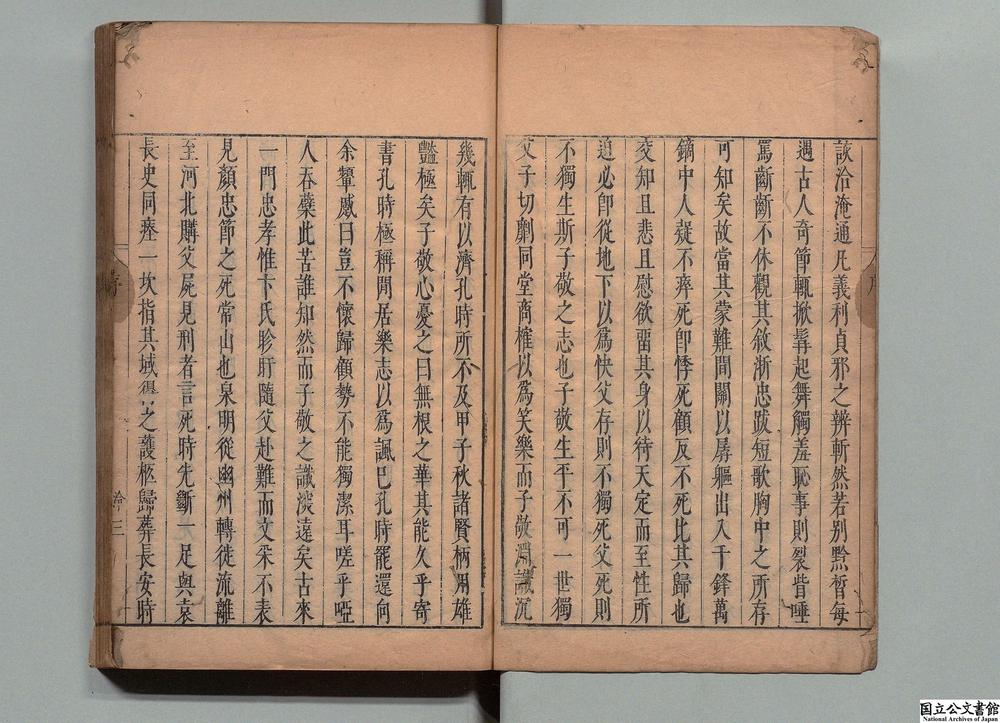 該洽淹通凡義利貞邪之辨斬然若別黔晳每
遇古人奇節輒掀髯起舞觸羞恥事則裂眥唾
罵斷斷不休觀其敘浙忠跋短歌胸中之所存
可知矣故當其蒙難間關以孱軀出入千鋒萬
鏑中人疑不瘁死卽悸死顧反不死比其歸也
交知且悲且慰欲畱其身以待天定而至性所
迫必卽從地下以爲快父存則不獨死父死則
不獨生斯子敬之志也子敬生平不可一世獨
父子切劘同堂商榷以爲笑樂而子敬淵識沉
幾輒有以濟孔時所不及甲子秋諸賢柄用雄
豔極矣子敬心憂之曰無根之華其能久乎寄
書孔時極稱閒居樂志以爲諷巳孔時罷還向
余顰蹙曰豈不懷歸顧勢不能獨潔耳嗟乎啞
人吞蘗此苦誰知然而子敬之識淡遠矣古來
一門忠孝惟卞氏眕盱隨父赴難而文采不表
見顏忠節之死常山也泉明從幽州轉徙流離
至河北購父屍見刑者言死時先斷一足與袁
長史同瘞一坎指其域得之護柩歸葬長安時
序
三
国立公文書館
National Archives of Japan